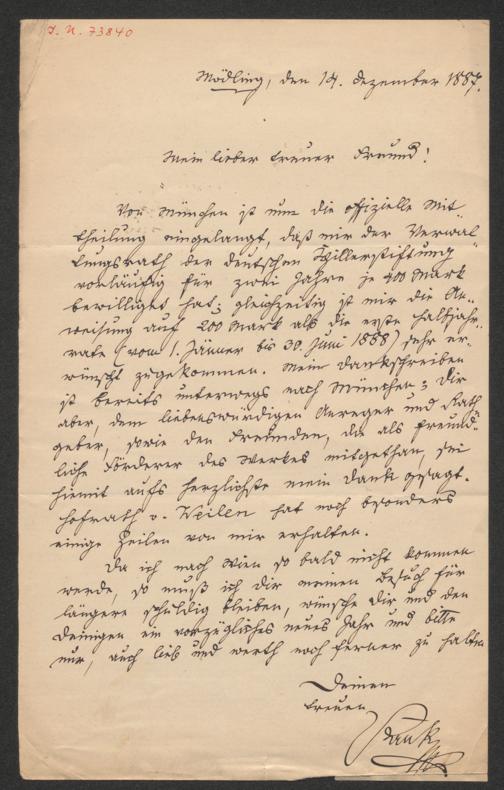 I. N. 73840
Mödling, den 14. Dezember 1887.
Mein lieber treuer Freund!
Von München ist nun die offizielle Mit-
theilung eingelangt, daß mir der Verwal-
tungsrath der deutschen Schillerstiftung
vorläufig für zwei Jahre je 400 Mark
bewilligt hat; gleichzeitig ist mir die An-
weisung auf 200 Mark als die erste Halbjahr-
rate (vom 1. Jänner bis 30. Juni 1888) sehr er-
wünscht zugekommen. Mein Dankschreiben
ist bereits unterwegs nach München; Dir
aber, dem liebenswürdigen Anreger und Rath-
geber, sowie den Freunden, die als freund-
liche Förderer des Werkes mitgethan, sei
hiemit aufs herzlichste mein Dank gesagt.
Hofrath v. Weilen hat noch besonders
einige Zeilen von mir erhalten.
Da ich nach Wien so bald nicht kommen
werde, so muß ich Dir meinen Besuch für
längere schuldig bleiben, wünsche Dir und den
Deinigen ein vorzügliches neues Jahr und bitte
nur, auch lieb und werth noch ferner zu halten
Deinen
treuen
Rank